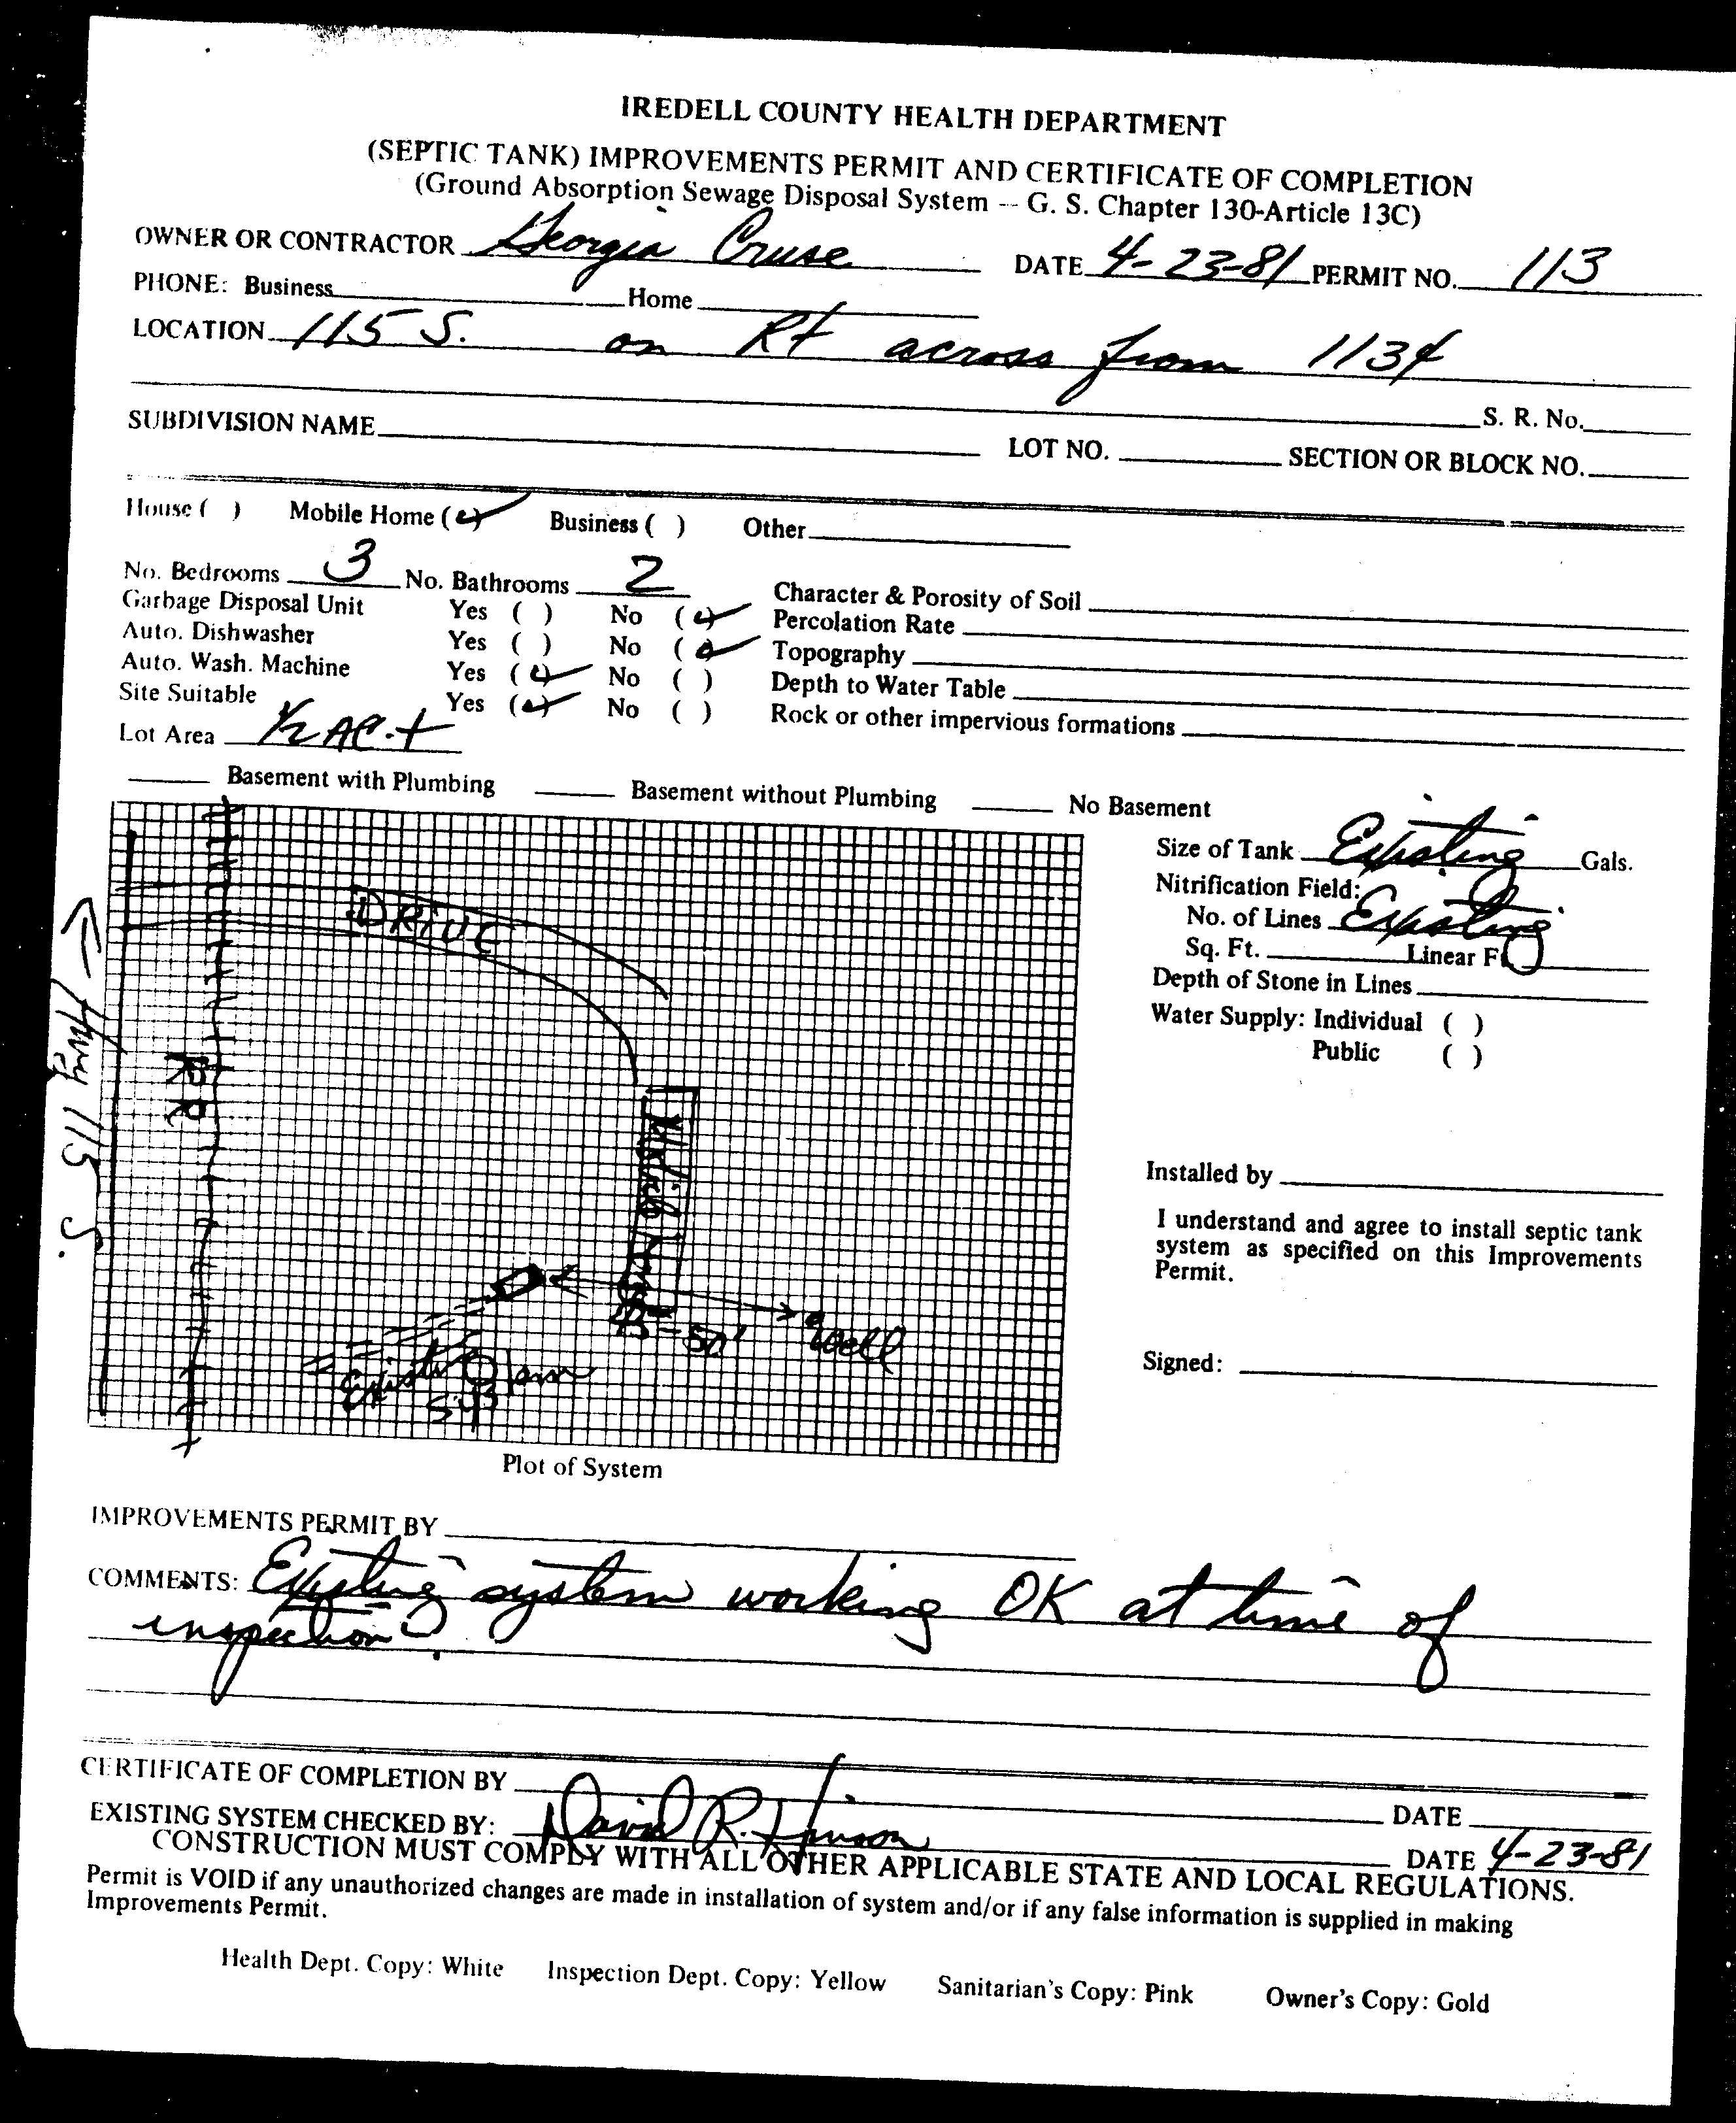 IREDELL COUNTY HEALTH DEPARTMENT
(SEPTIC TANK) IMPROVEMENTS PERMIT AND CERTIFICATE OF COMPLETION
(Ground Absorption Sewage Disposal System -- G. S. Chapter 130-Article 13C)
OWNER OR CONTRACTOR Georgia Cruse DATE 4-23-81 PERMIT NO. 113
PHONE: Business Home
LOCATION 115 S. on Rt across from 1134
S. R. No.
SUBDIVISION NAME LOT NO. SECTION OR BLOCK NO.
House ( ) Mobile Home (✓) Business ( ) Other
No. Bedrooms 3 No. Bathrooms 2 Character & Porosity of Soil
Garbage Disposal Unit Yes ( ) No (✓) Percolation Rate
Auto. Dishwasher Yes ( ) No (✓) Topography
Auto. Wash. Machine Yes (✓) No ( ) Depth to Water Table
Site Suitable Yes (✓) No ( ) Rock or other impervious formations
Lot Area 1/2 AC.+
Basement with Plumbing Basement without Plumbing No Basement
Size of Tank Existing Gals.
Nitrification Field:
No. of Lines Existing
Sq. Ft. Linear Ft.
Depth of Stone in Lines
Water Supply: Individual ( )
Public ( )
Installed by
I understand and agree to install septic tank
system as specified on this Improvements
Permit.
Signed:
DRIVE
← Hwy 115 S.
RR
Mobile Home
50'
Well
Existing
Sys
Plot of System
IMPROVEMENTS PERMIT BY
COMMENTS: Existing system working OK at time of
inspection.
CERTIFICATE OF COMPLETION BY DATE
EXISTING SYSTEM CHECKED BY: David R. Hinson DATE 4-23-81
CONSTRUCTION MUST COMPLY WITH ALL OTHER APPLICABLE STATE AND LOCAL REGULATIONS.
Permit is VOID if any unauthorized changes are made in installation of system and/or if any false information is supplied in making
Improvements Permit.
Health Dept. Copy: White Inspection Dept. Copy: Yellow Sanitarian's Copy: Pink Owner's Copy: Gold